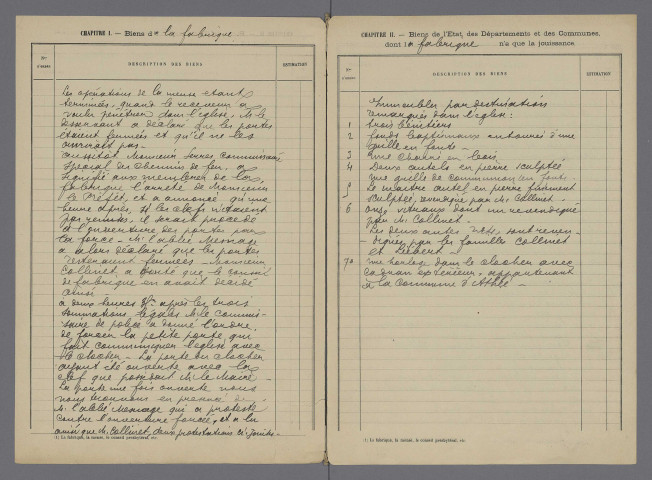 CHAPITRE I. — Biens de la fabrique
Nos d'ordre
DESCRIPTION DES BIENS
ESTIMATION
Les opérations de la mense étant
terminées, quand le receveur a
voulu pénétrer dans l'église, M. le
Desservant a déclaré que les portes
étaient fermées et qu'il ne les
ouvrirait pas.
Aussitôt Monsieur Commissaire
Spécial des Chemins de fer, a
signifié aux membres de la
fabrique l'arrêté de Monsieur
le Préfet, et a annoncé qu'une
heure après, si les clefs n'étaient
pas remises, il serait procédé
à l'ouverture des portes par
la force — M. l'abbé Message
a alors déclaré que les portes
resteraient fermées — Monsieur
Collinet, a ajouté que le conseil
de fabrique en avait décidé
ainsi
à deux heures après les trois
sommations légales M. le Commis-
saire de police a donné l'ordre
de forcer la petite porte qui
fait communiquer l'église avec
le clocher — La porte du clocher
ayant été ouverte avec la
clef que possédait M. le Maire —
La porte une fois ouverte nous
nous trouvons en présence de
M. l'abbé Message qui a protesté
contre l'ouverture forcée, et a lu
ainsi que M. Collinet, deux protestations ci-jointes
(1) La fabrique, la mense, le conseil presbytéral, etc.
CHAPITRE II. — Biens de l'État, des Départements et des Communes,
dont la fabrique n'a que la jouissance
Nos d'ordre
DESCRIPTION DES BIENS
ESTIMATION
Immeubles par destination
remarqués dans l'église :
1 trois bénitiers
2 fonds baptismaux entourés d'une
grille en fonte —
3 une chaire en bois
4 Deux autels en pierre sculptée
une grille de communion en fonte
5 Le maître autel en pierre finement
sculptée, revendiqué par M. Collinet.
6 onze vitraux dont un revendiqué
par M. Collinet.
Les deux autres sont reven-
diqués par les familles Collinet
et
7o une horloge dans le clocher avec
cadran extérieur, appartenant
à la commune d'Athée —
(1) La fabrique, la mense, le conseil presbytéral, etc.